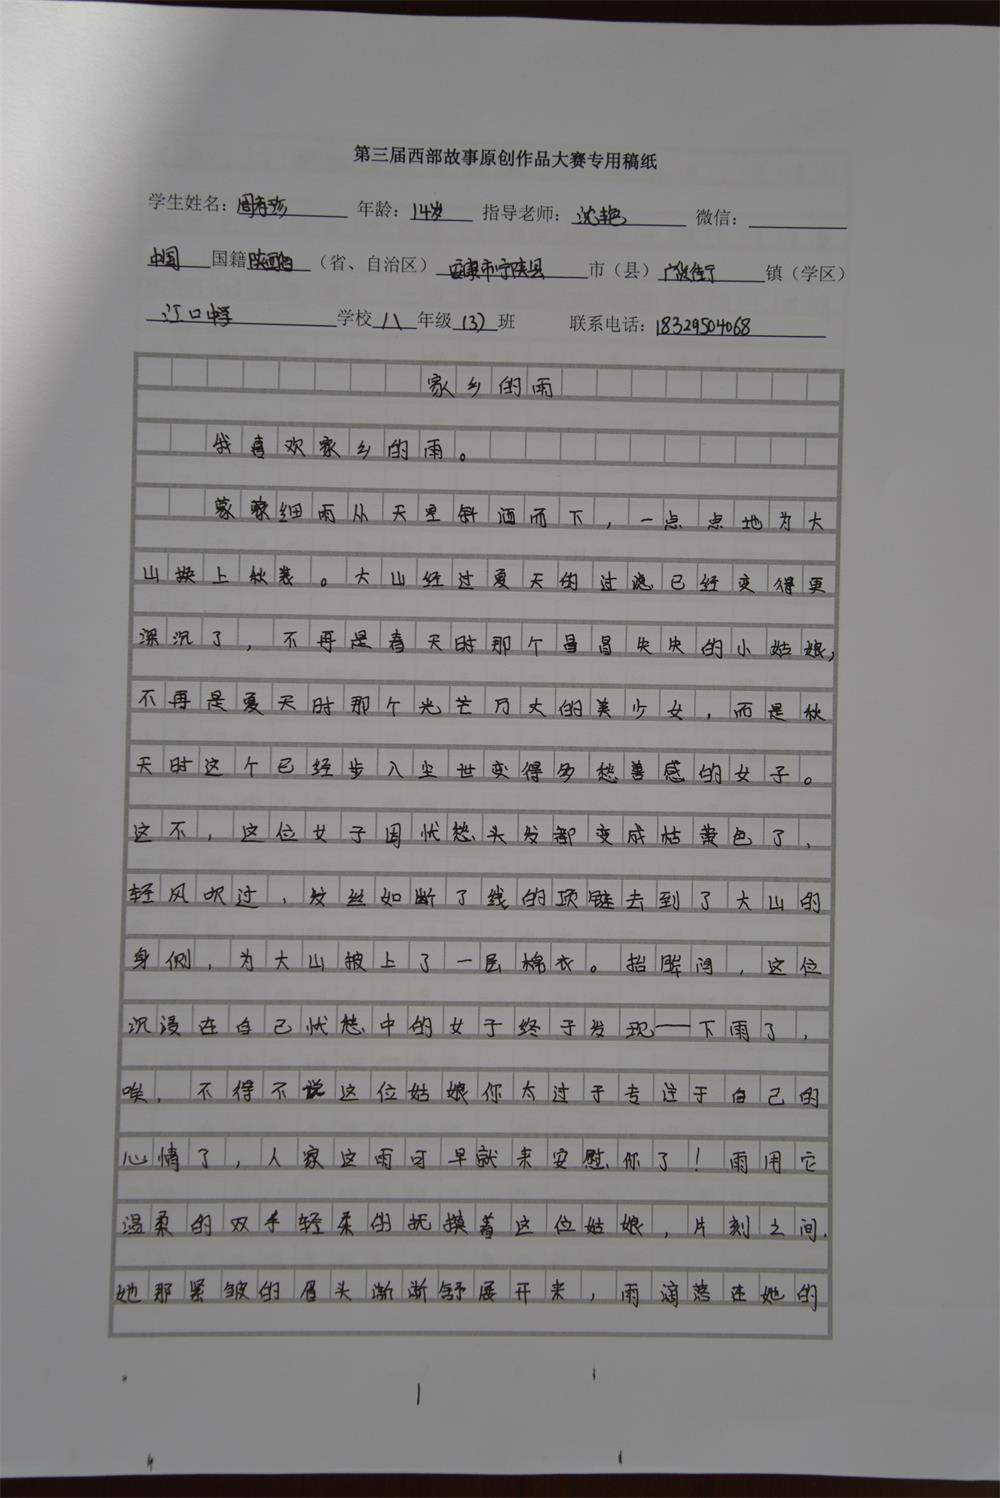 第三届西部故事原创作品大赛专用稿纸
学生姓名：周 年龄：14岁 指导老师：沈艳 微信：
中国 国籍 陕西省 （省、自治区） 安康市宁陕县 市（县） 镇（学区）
江口中学 学校 八 年级 (3) 班 联系电话：18329504068
家乡的雨
我喜欢家乡的雨。
蒙蒙细雨从天空斜洒而下，一点点地为大
山换上秋装。大山经过夏天的过滤已经变得更
深沉了，不再是春天时那个冒冒失失的小姑娘，
不再是夏天时那个光芒万丈的美少女，而是秋
天时这个已经步入尘世变得多愁善感的女子。
这不，这位女子因忧愁头发都变成枯黄色了，
轻风吹过，发丝如断了线的项链去到了大山的
身侧，为大山披上了一层棉衣。抬眸间，这位
沉浸在自己忧愁中的女子终于发现——下雨了，
唉，不得不说这位姑娘你太过于专注于自己的
心情了，人家这雨可早就来安慰你了！雨用它
温柔的双手轻柔的抚摸着这位姑娘，片刻之间，
她那紧皱的眉头渐渐舒展开来，雨滴落在她的
1